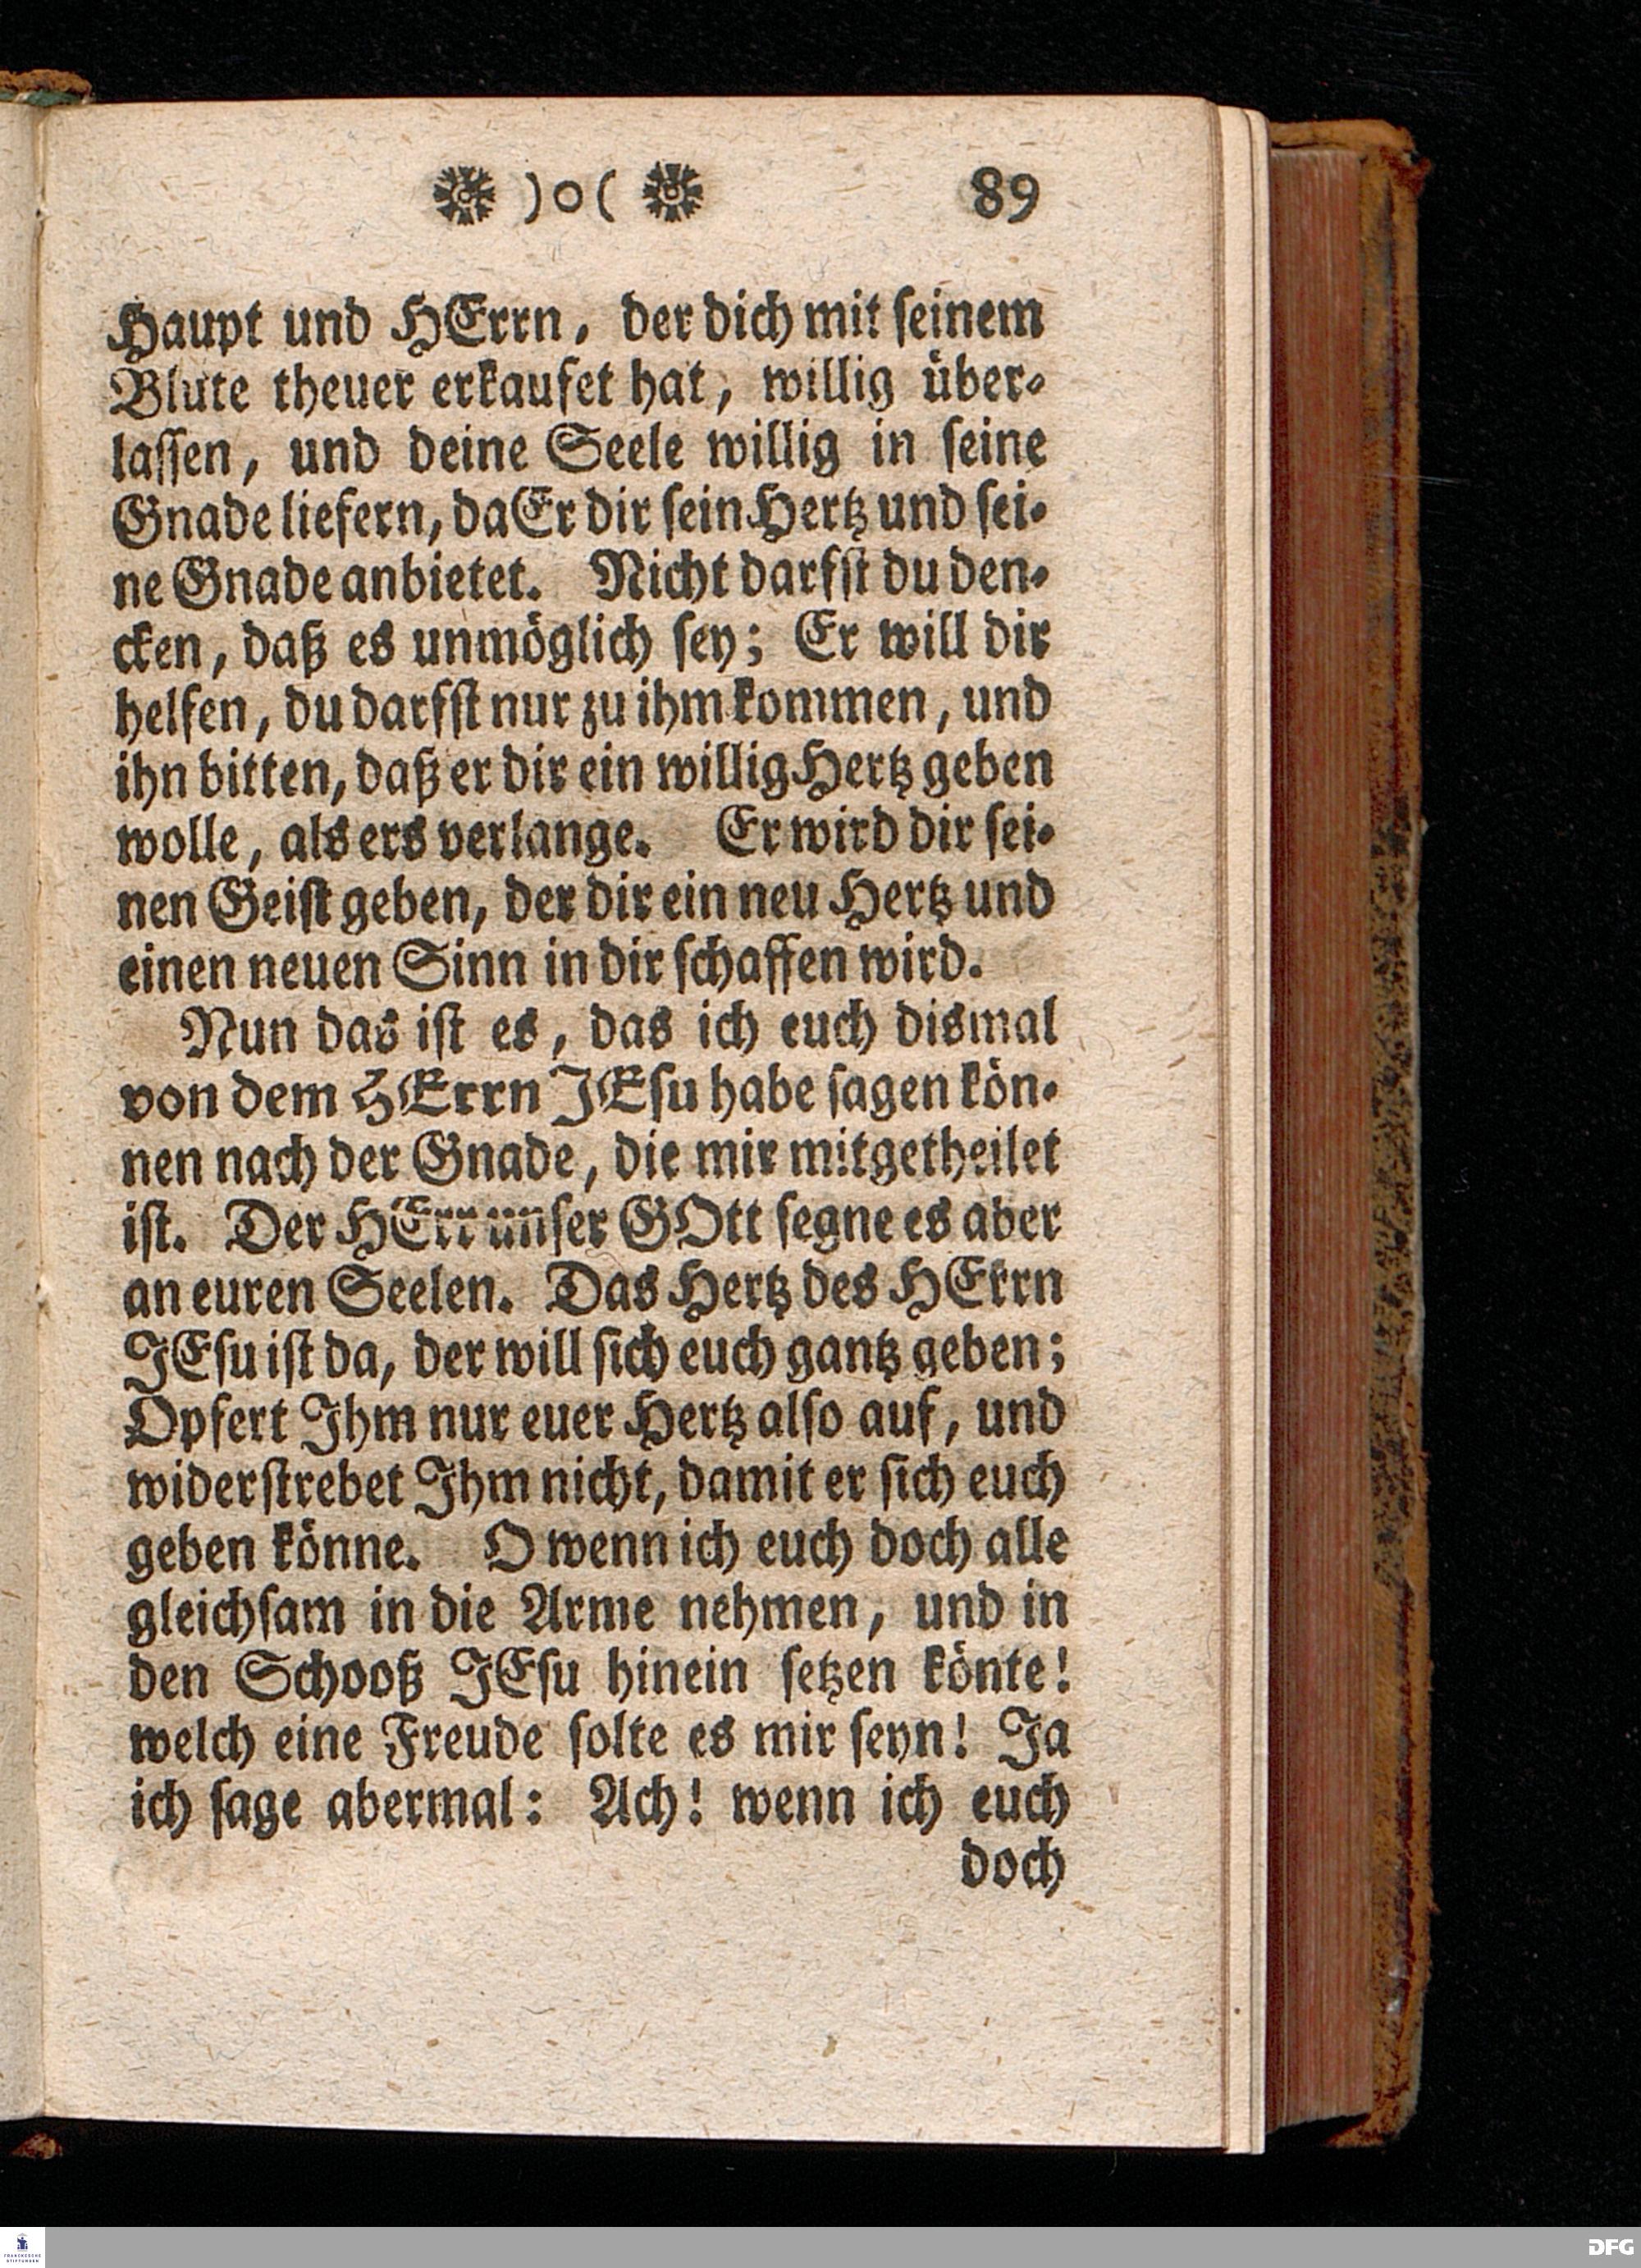 )o( 89
Haupt und HErrn, der dich mit ſeinem
Blute theuer erkaufet hat, willig über-
laſſen, und deine Seele willig in ſeine
Gnade liefern, da Er dir ſein Hertz und ſei-
ne Gnade anbietet. Nicht darfſt du den-
cken, daß es unmöglich ſey; Er will dir
helfen, du darfſt nur zu ihm kommen, und
ihn bitten, daß er dir ein willig Hertz geben
wolle, als ers verlange. Er wird dir ſei-
nen Geiſt geben, der dir ein neu Hertz und
einen neuen Sinn in dir ſchaffen wird.
Nun das iſt es, das ich euch dismal
von dem HErrn JEſu habe ſagen kön-
nen nach der Gnade, die mir mitgetheilet
iſt. Der HErr unſer GOtt ſegne es aber
an euren Seelen. Das Hertz des HErrn
JEſu iſt da, der will ſich euch gantz geben;
Opfert Ihm nur euer Hertz alſo auf, und
widerſtrebet Ihm nicht, damit er ſich euch
geben könne. O wenn ich euch doch alle
gleichſam in die Arme nehmen, und in
den Schooß JEſu hinein ſetzen könte!
welch eine Freude ſolte es mir ſeyn! Ja
ich ſage abermal: Ach! wenn ich euch
doch
FRANCKESCHE
STIFTUNGEN
DFG